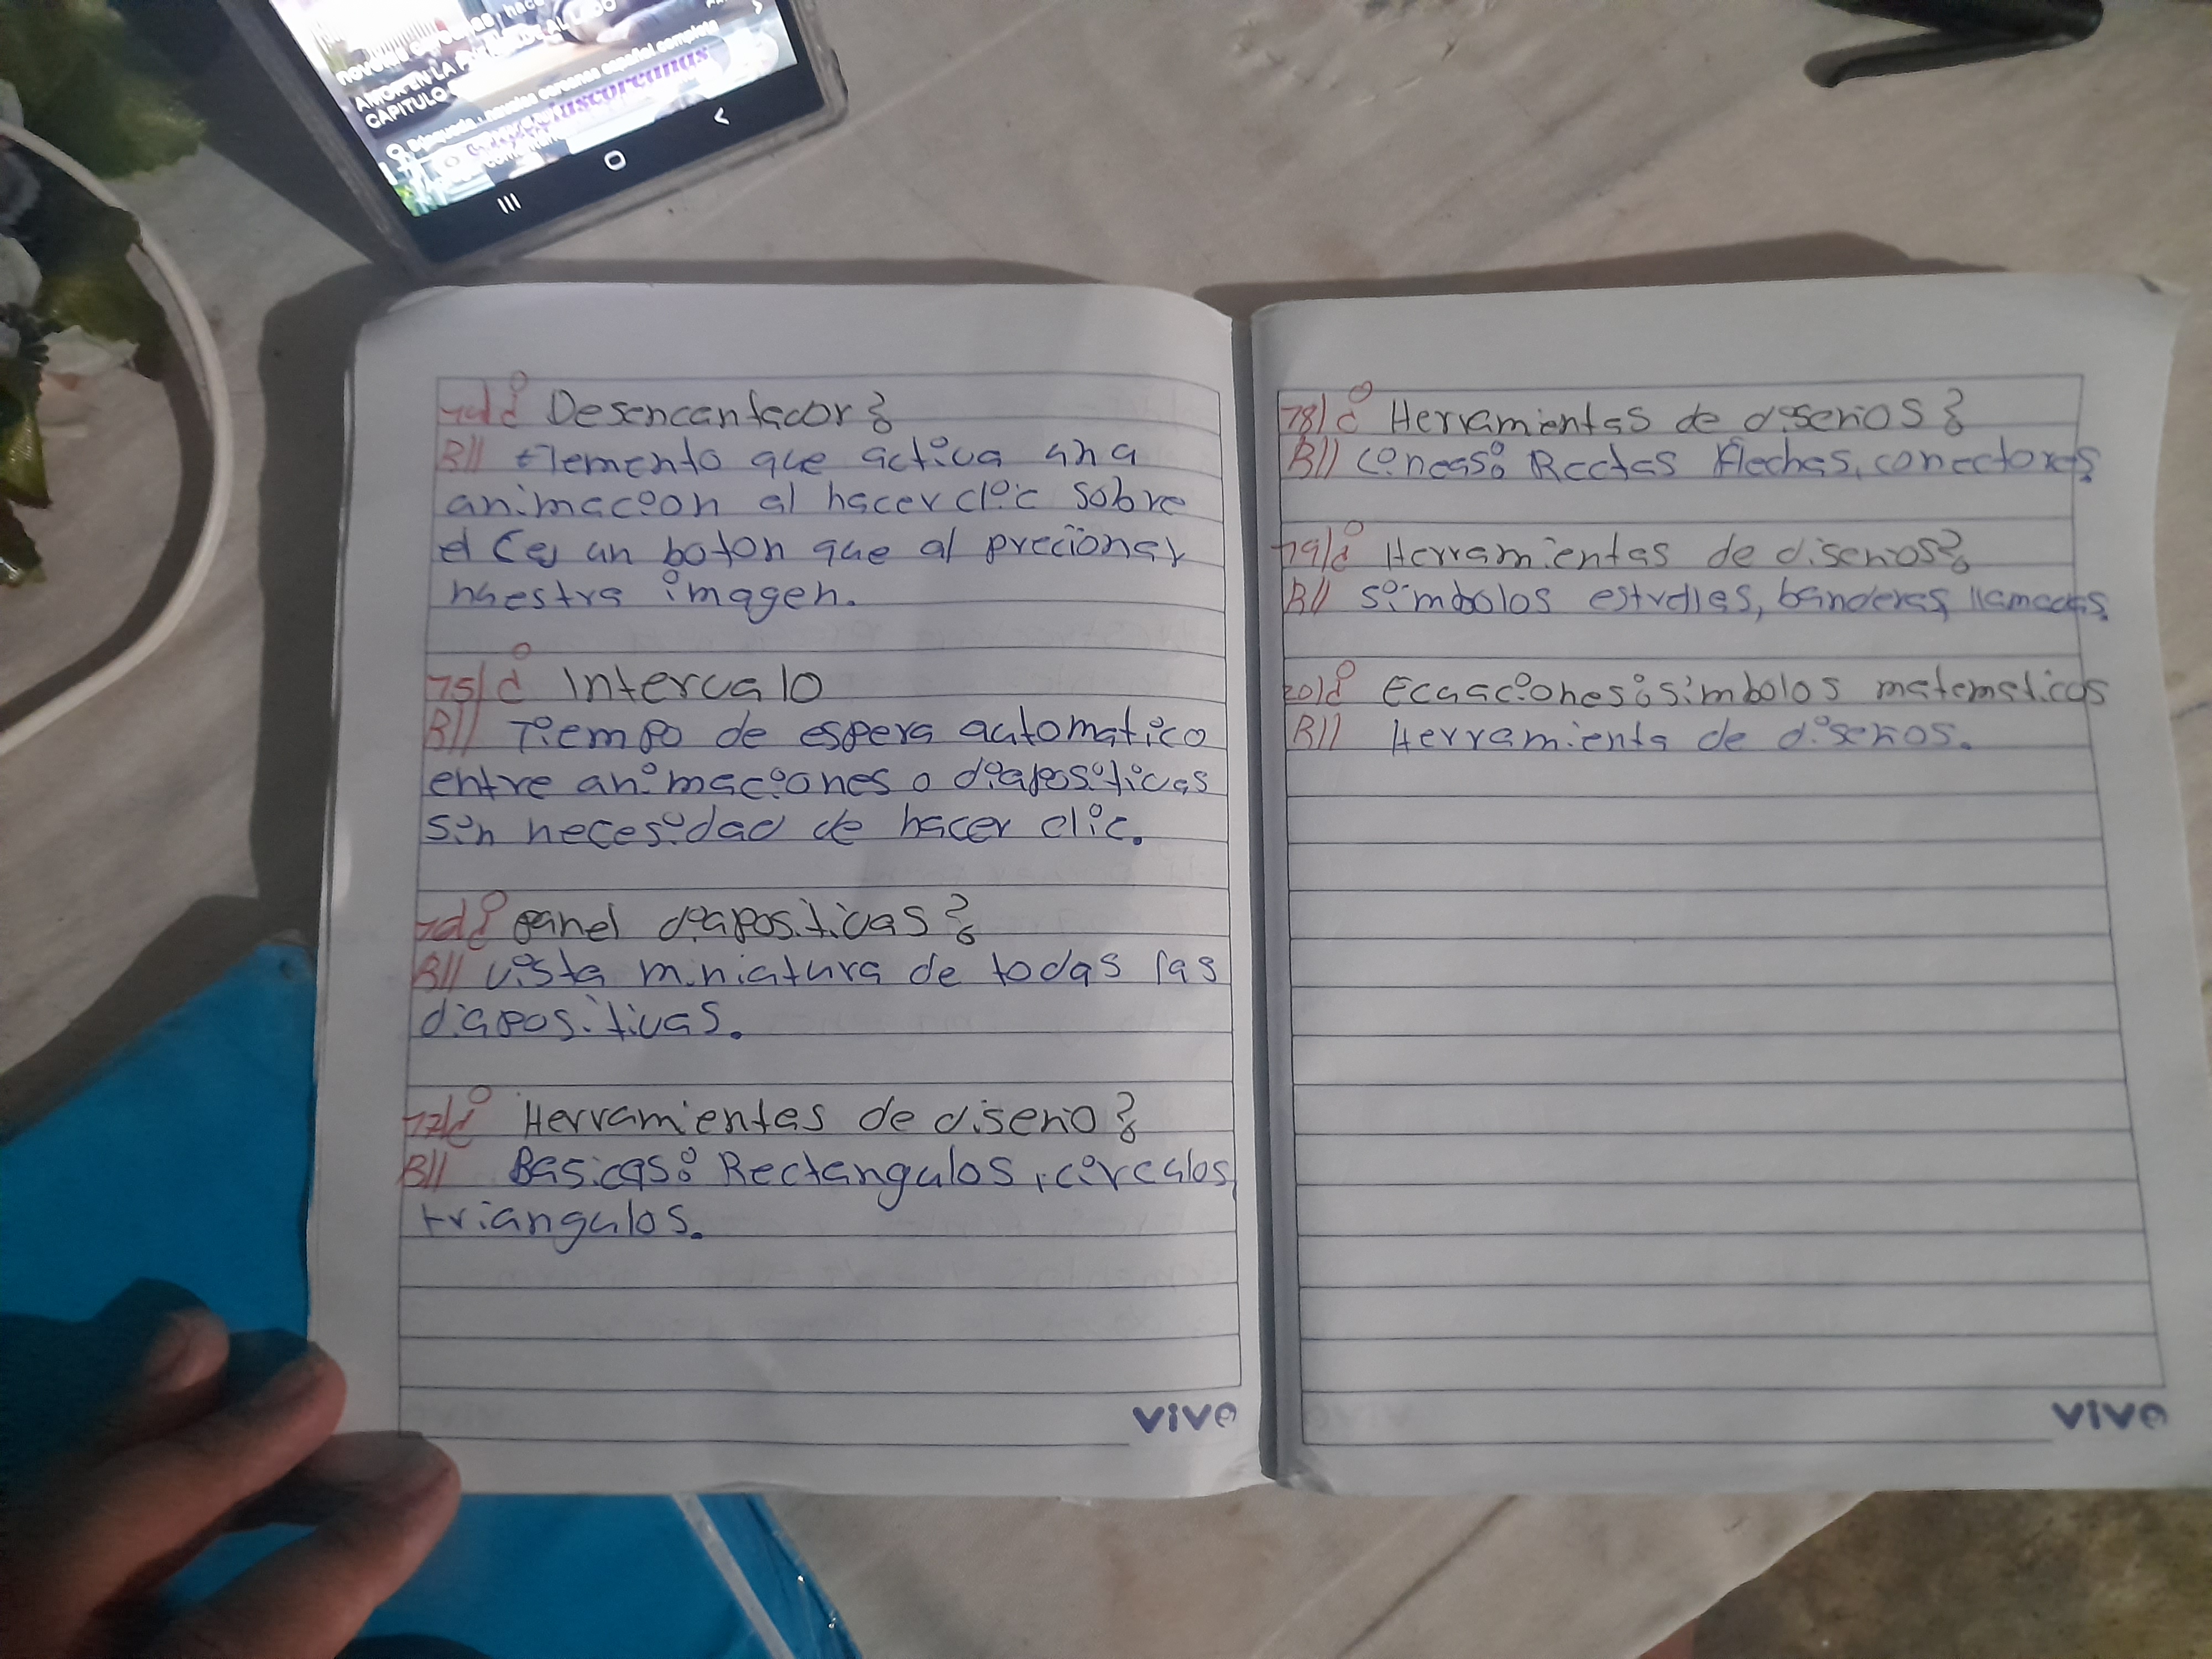 CAPITULO
14/¿ Desencantador?
R// Elemento que activa una
animacion al hacer clic sobre
el (ej un boton que al precionar
nuestra imagen.
15/¿ Intervalo
R// Tiempo de espera automatico
entre animaciones o diapositivas
sin necesidad de hacer clic.
16/¿ panel diapositivas?
R// vista miniatura de todas las
diapositivas.
17/¿ Herramientas de diseño?
R// Basicas: Rectangulos, circulos,
triangulos.
vivo
18/¿ Herramientas de diseños?
R// Lineas: Rectas flechas, conectores
19/¿ Herramientas de diseños?
R// Simbolos estrellas, banderas, llamadas
20/¿ Ecuaciones: simbolos matematicos
R// Herramienta de diseños.
vivo